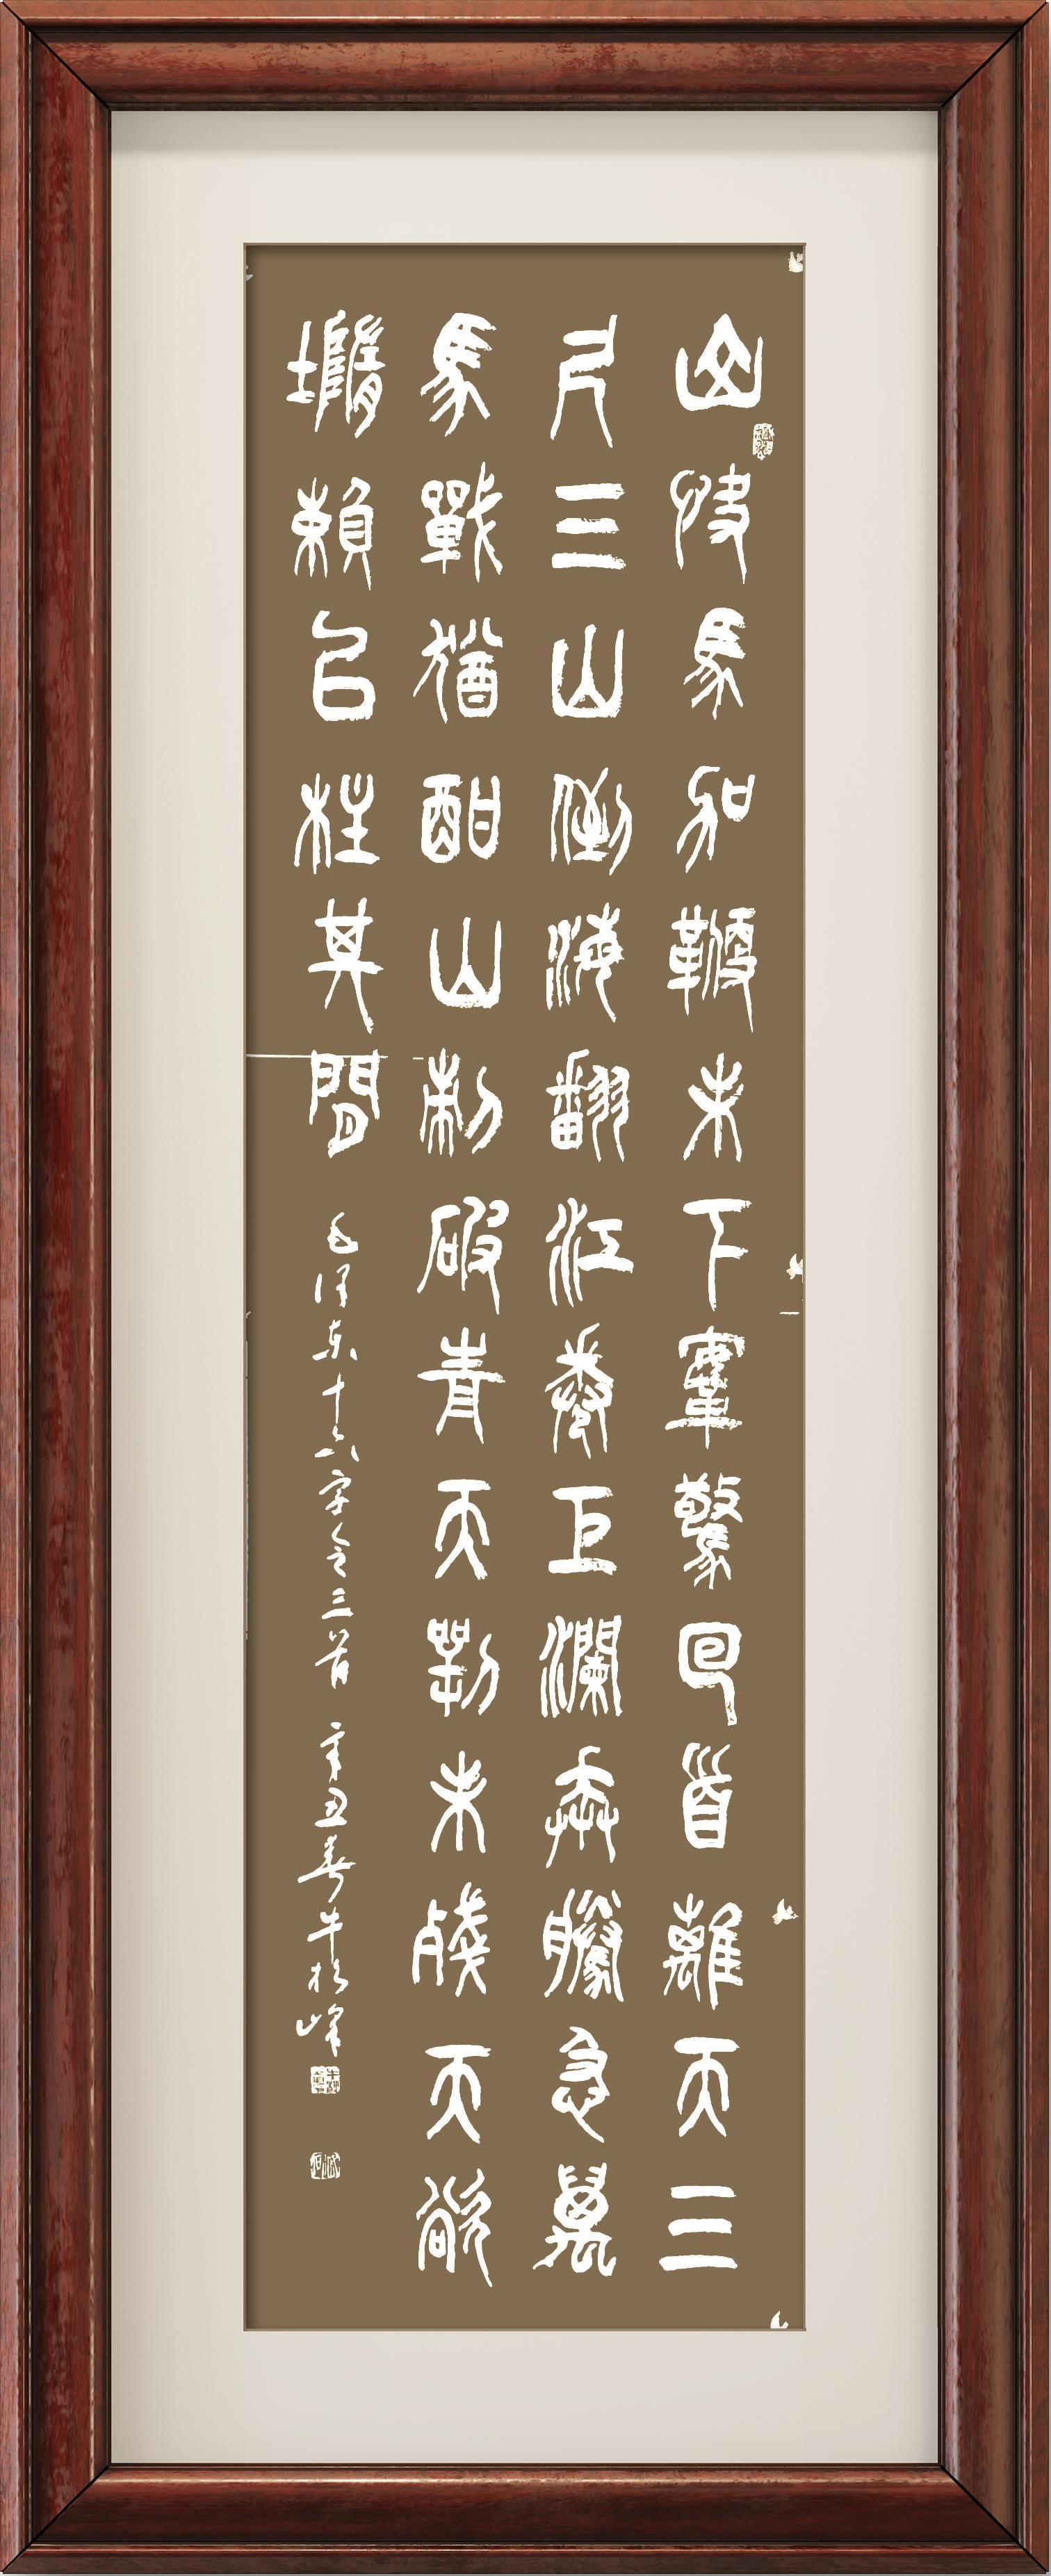 山快馬加鞭未下鞌驚回首離天三
尺三山倒海翻江卷巨瀾奔騰急萬
馬戰猶酣山刺破青天鍔未殘天欲
墮賴以柱其間 毛澤東十六字令三首 辛丑春牛松峰